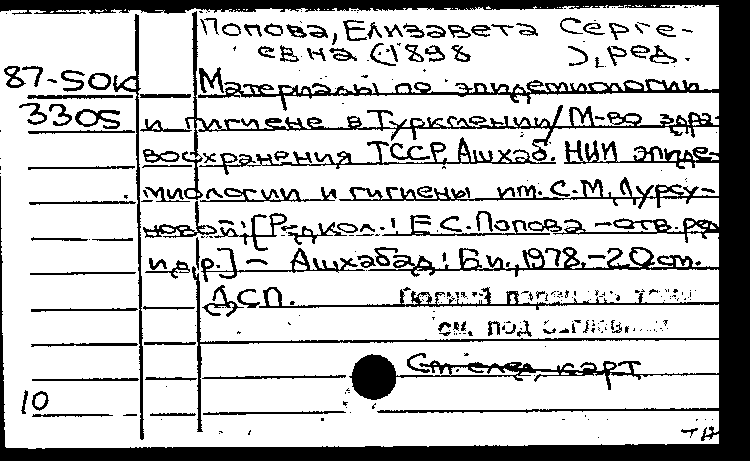 Попова, Елизавета Серге-
евна (1898 ), ред.
87-50К Материалы по эпидемиологии
3305 и гигиене в Туркмении/ М-во здра-
воохранения ТССР, Ашхаб. НИИ эпиде-
миологии и гигиены им. С.М, Нурсу-
новой; [Редкол.: Е.С.Попова - отв.ред
и др.] - Ашхабад: Б.и., 1978.- 20см.
ДСП. Полный перечень
см. под заглавием
См. след. карт.
10